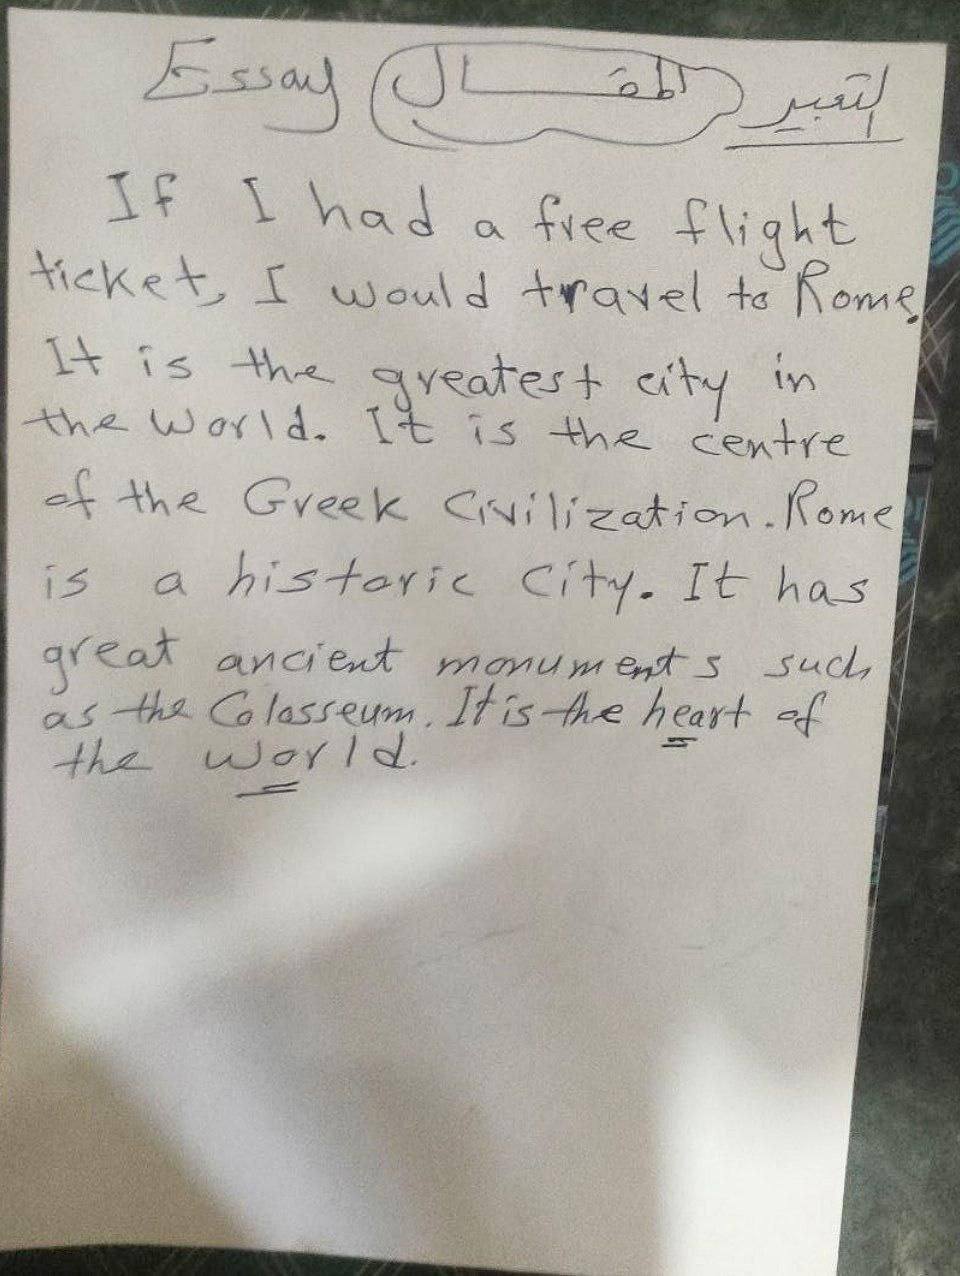 Essay المقال التعبير
If I had a free flight
ticket, I would travel to Rome.
It is the greatest city in
the world. It is the centre
of the Greek Civilization. Rome
is a historic City. It has
great ancient monuments such
as the Colosseum. It is the heart of
the world.